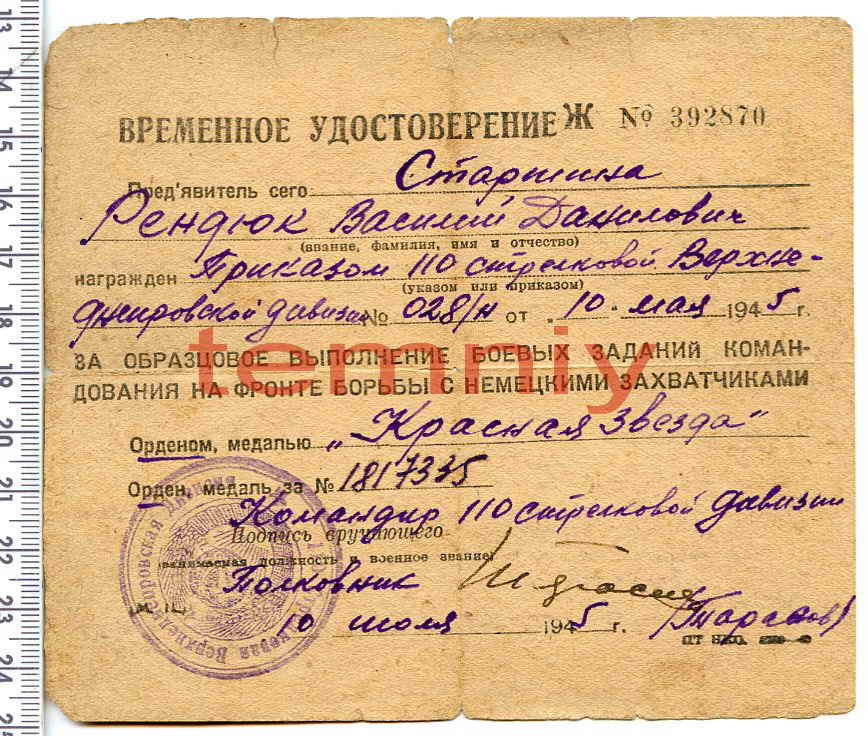 ВРЕМЕННОЕ УДОСТОВЕРЕНИЕ Ж № 392870
Пред'явитель сего Старшина
Рендюк Василий Данилович
(звание, фамилия, имя и отчество)
награжден Приказом 110 стрелковой Верхне-
(указом или приказом)
днепровской дивизии № 028/н от "10" мая 1945 г.
ЗА ОБРАЗЦОВОЕ ВЫПОЛНЕНИЕ БОЕВЫХ ЗАДАНИЙ КОМАН-
ДОВАНИЯ НА ФРОНТЕ БОРЬБЫ С НЕМЕЦКИМИ ЗАХВАТЧИКАМИ
temniy
Орденом, медалью „Красная Звезда"
Орден, медаль за № 1817335
Командир 110 стрелковой дивизии
Подпись вручающего
(занимаемая должность и военное звание)
Полковник
М. П.
10 июля 1945 г. (Тарасов)
13 14 15 16 17 18 19 20 21 22 23 24 25